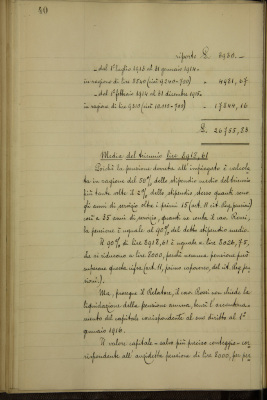 80
riporto L. 3930.—
– dal 1° luglio 1913 al 31 gennaio 1914.
in ragione di lire 8540 (cioè 9240-700) „ 4981,67.
– dal 1° febbraio 1914 al 31 dicembre 1915.
in ragione di lire 9310 (cioè 10.010-700) „ 17844,16
L. 26755,83.
Media del triennio lire 8918,61
Poichè la pensione dovuta all'impiegato è calcola
ta in ragione del 30% dello stipendio medio del triennio
più tante volte il 2% dello stipendio stesso quanti sono
gli anni di servizio oltre i primi 15 (art. 11 cit. Reg. pensioni)
con 35 anni di servizio, quanti ne conta il cav. Rossi,
la pensione è uguale al 90% del detto stipendio medio.
Il 90% di lire 8918,61 è uguale a lire 8026,75,
che si riducono a lire 8000, perchè nessuna pensione può
superare questa cifra (art. 11, primo capoverso, del cit. Reg. pen
sioni).
Ma, prosegue il Relatore, il cav. Rossi non chiede la
liquidazione della pensione annua, bensì l'accertamento
del capitale corrispondente al suo diritto al 1°
gennaio 1916.
Il valore capitale – salvo più preciso conteggio – cor
rispondente all'anzidetta pensione di lire 8000, per